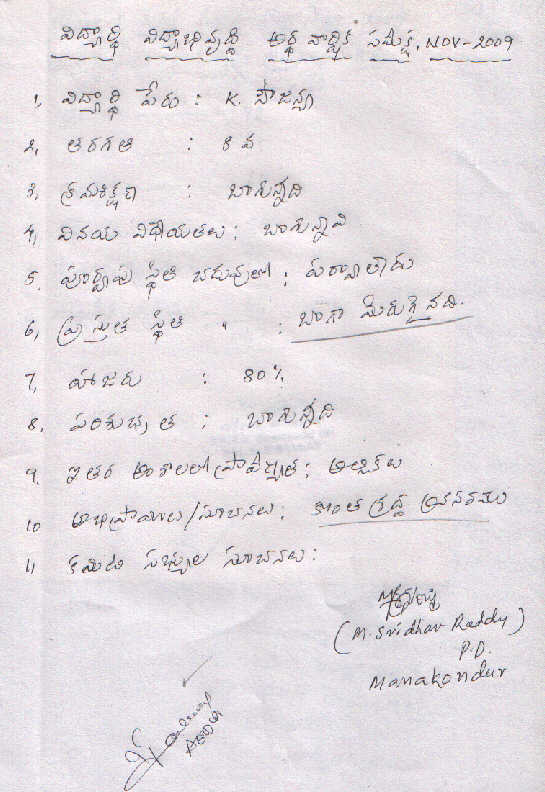 విద్యార్థి విద్యాభివృద్ధి అర్థ వార్షిక సమీక్ష, NOV-2009
1, విద్యార్థి పేరు : K. సౌజన్య
2, తరగతి : 8 వ
3, క్రమశిక్షణ : బాగున్నది
4, వినయ విధేయతలు : బాగున్నవి
5. పూర్వపు స్థితి చదువులో : పర్వాలేదు
6, ప్రస్తుత స్థితి " : బాగా మెరుగైనది.
7, హాజరు : 80%
8, పరిశుభ్రత : బాగున్నది
9. ఇతర అంశాలలో ప్రావీణ్యత :
10 అభిప్రాయాలు/సూచనలు : కొంత శ్రద్ధ అవసరము
11 కమిటి సభ్యుల సూచనలు :
(M. Sridhar Reddy)
P.D.
Manakondur